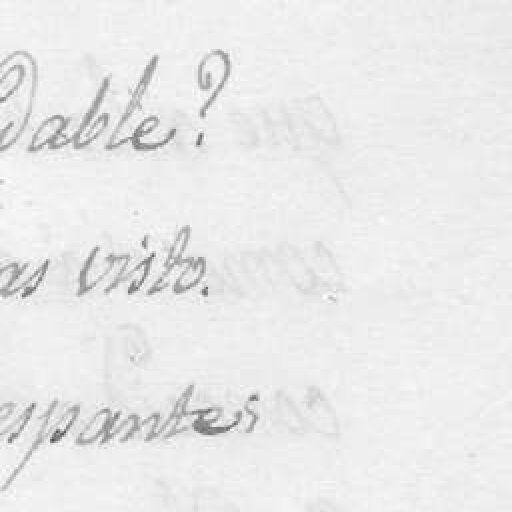 dable?
as visto.
espantes